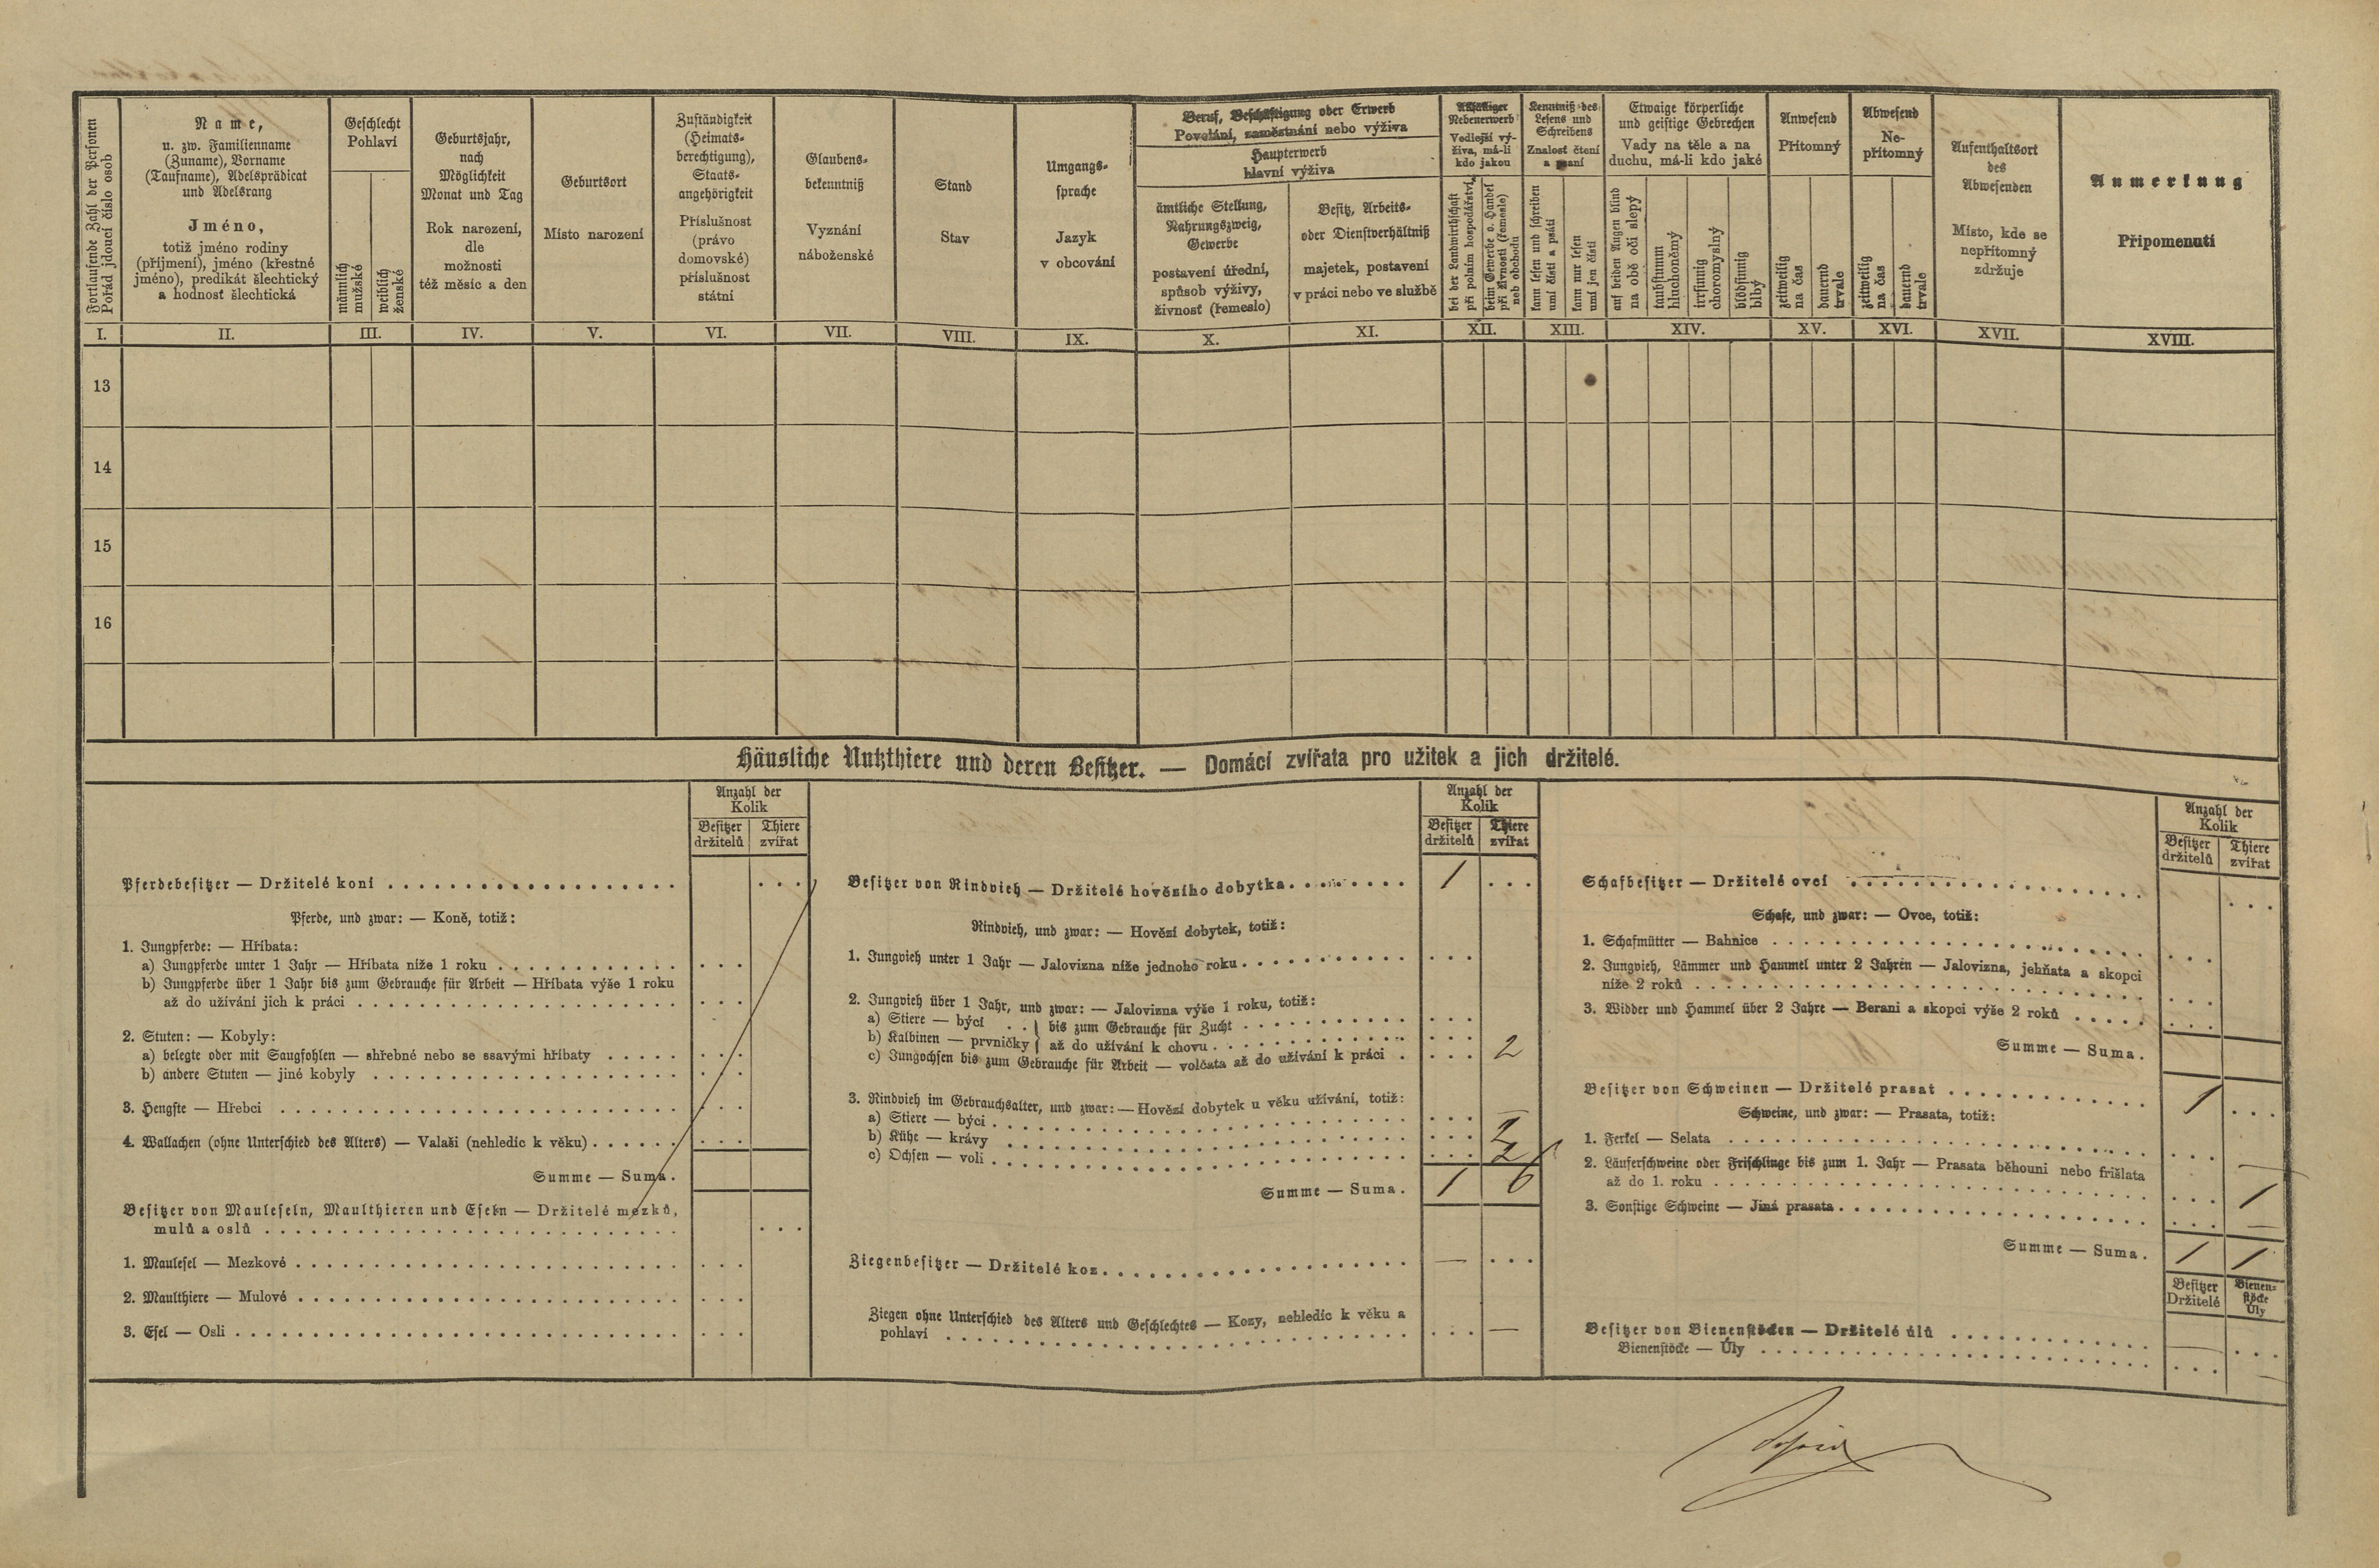 Fortlaufende Zahl der Personen
Pořád jdoucí číslo osob
Name,
u. zw. Familienname
(Zuname), Vorname
(Taufname), Adelsprädicat
und Adelsrang
Jméno,
totiž jméno rodiny
(příjmení), jméno (křestné
jméno), predikát šlechtický
a hodnosť šlechtická
Geschlecht
Pohlaví
männlich
mužské
weiblich
ženské
Geburtsjahr,
nach
Möglichkeit
Monat und Tag
Rok narození,
dle
možnosti
též měsíc a den
Geburtsort
Místo narození
Zuständigkeit
(Heimats-
berechtigung),
Staats-
angehörigkeit
Příslušnost
(právo
domovské)
příslušnost
státní
Glaubens-
bekenntniß
Vyznání
náboženské
Stand
Stav
Umgangs-
sprache
Jazyk
v obcování
Beruf, Beschäftigung oder Erwerb
Povolání, zaměstnání nebo výživa
Haupterwerb
hlavní výživa
ämtliche Stellung,
Nahrungszweig,
Gewerbe
postavení úřední,
spůsob výživy,
živnosť (řemeslo)
Besitz, Arbeits-
oder Dienstverhältniß
majetek, postavení
v práci nebo ve službě
Allfälliger
Nebenerwerb
Vedlejší vý-
živa, má-li
kdo jakou
bei der Landwirthschaft
při polním hospodářství,
beim Gewerbe o. Handel
při živnosti (řemesle)
neb obchodu
Kenntniß des
Lesens und
Schreibens
Znalosť čtení
a psaní
kann lesen und schreiben
umí čísti a psáti
kann nur lesen
umí jen čísti
Etwaige körperliche
und geistige Gebrechen
Vady na těle a na
duchu, má-li kdo jaké
auf beiden Augen blind
na obě oči slepý
taubstumm
hluchoněmý
irrsinnig
choromyslný
blödsinnig
blbý
Anwesend
Přítomný
zeitweilig
na čas
dauernd
trvale
Abwesend
Ne-
přítomný
zeitweilig
na čas
dauernd
trvale
Aufenthaltsort
des
Abwesenden
Místo, kde se
nepřítomný
zdržuje
Anmerkung
Připomenutí
I. II. III. IV. V. VI. VII. VIII. IX. X. XI. XII. XIII. XIV. XV. XVI. XVII. XVIII.
13
14
15
16
Häusliche Nutzthiere und deren Besitzer. — Domácí zvířata pro užitek a jich držitelé.
Anzahl der
Kolik
Besitzer Thiere
držitelů zvířat
Pferdebesitzer — Držitelé koní
Pferde, und zwar: — Koně, totiž:
1. Jungpferde: — Hříbata:
a) Jungpferde unter 1 Jahr — Hříbata níže 1 roku
b) Jungpferde über 1 Jahr bis zum Gebrauche für Arbeit — Hříbata výše 1 roku
až do užívání jich k práci
2. Stuten: — Kobyly:
a) belegte oder mit Saugfohlen — shřebné nebo se ssavými hříbaty
b) andere Stuten — jiné kobyly
3. Hengste — Hřebci
4. Wallachen (ohne Unterschied des Alters) — Valaši (nehledíc k věku)
Summe — Suma.
Besitzer von Mauleseln, Maulthieren und Eseln — Držitelé mezků,
mulů a oslů
1. Maulesel — Mezkové
2. Maulthiere — Mulové
3. Esel — Osli
Anzahl der
Kolik
Besitzer Thiere
držitelů zvířat
Besitzer von Rindvieh — Držitelé hovězího dobytka 1
Rindvieh, und zwar: — Hovězí dobytek, totiž:
1. Jungvieh unter 1 Jahr — Jalovizna níže jednoho roku
2. Jungvieh über 1 Jahr, und zwar: — Jalovizna výše 1 roku, totiž:
a) Stiere — býci } bis zum Gebrauche für Zucht
b) Kalbinen — prvničky } až do užívání k chovu
c) Jungochsen bis zum Gebrauche für Arbeit — volčata až do užívání k práci 2
3. Rindvieh im Gebrauchsalter, und zwar: — Hovězí dobytek u věku užívání, totiž:
a) Stiere — býci —
b) Kühe — krávy 2
c) Ochsen — voli 2
Summe — Suma. 1 6
Ziegenbesitzer — Držitelé koz —
Ziegen ohne Unterschied des Alters und Geschlechtes — Kozy, nehledíc k věku a
pohlaví —
Anzahl der
Kolik
Besitzer Thiere
držitelů zvířat
Schafbesitzer — Držitelé ovcí
Schafe, und zwar: — Ovce, totiž:
1. Schafmütter — Bahnice
2. Jungvieh, Lämmer und Hammel unter 2 Jahren — Jalovizna, jehňata a skopci
níže 2 roků
3. Widder und Hammel über 2 Jahre — Berani a skopci výše 2 roků
Summe — Suma.
Besitzer von Schweinen — Držitelé prasat 1
Schweine, und zwar: — Prasata, totiž:
1. Ferkel — Selata —
2. Läuferschweine oder Frischlinge bis zum 1. Jahr — Prasata běhouni nebo frišlata
až do 1. roku 1
3. Sonstige Schweine — Jiná prasata —
Summe — Suma. 1 1
Besitzer Bienen-
stöcke
Držitelé Úly
Besitzer von Bienenstöcken — Držitelé úlů —
Bienenstöcke — Úly —